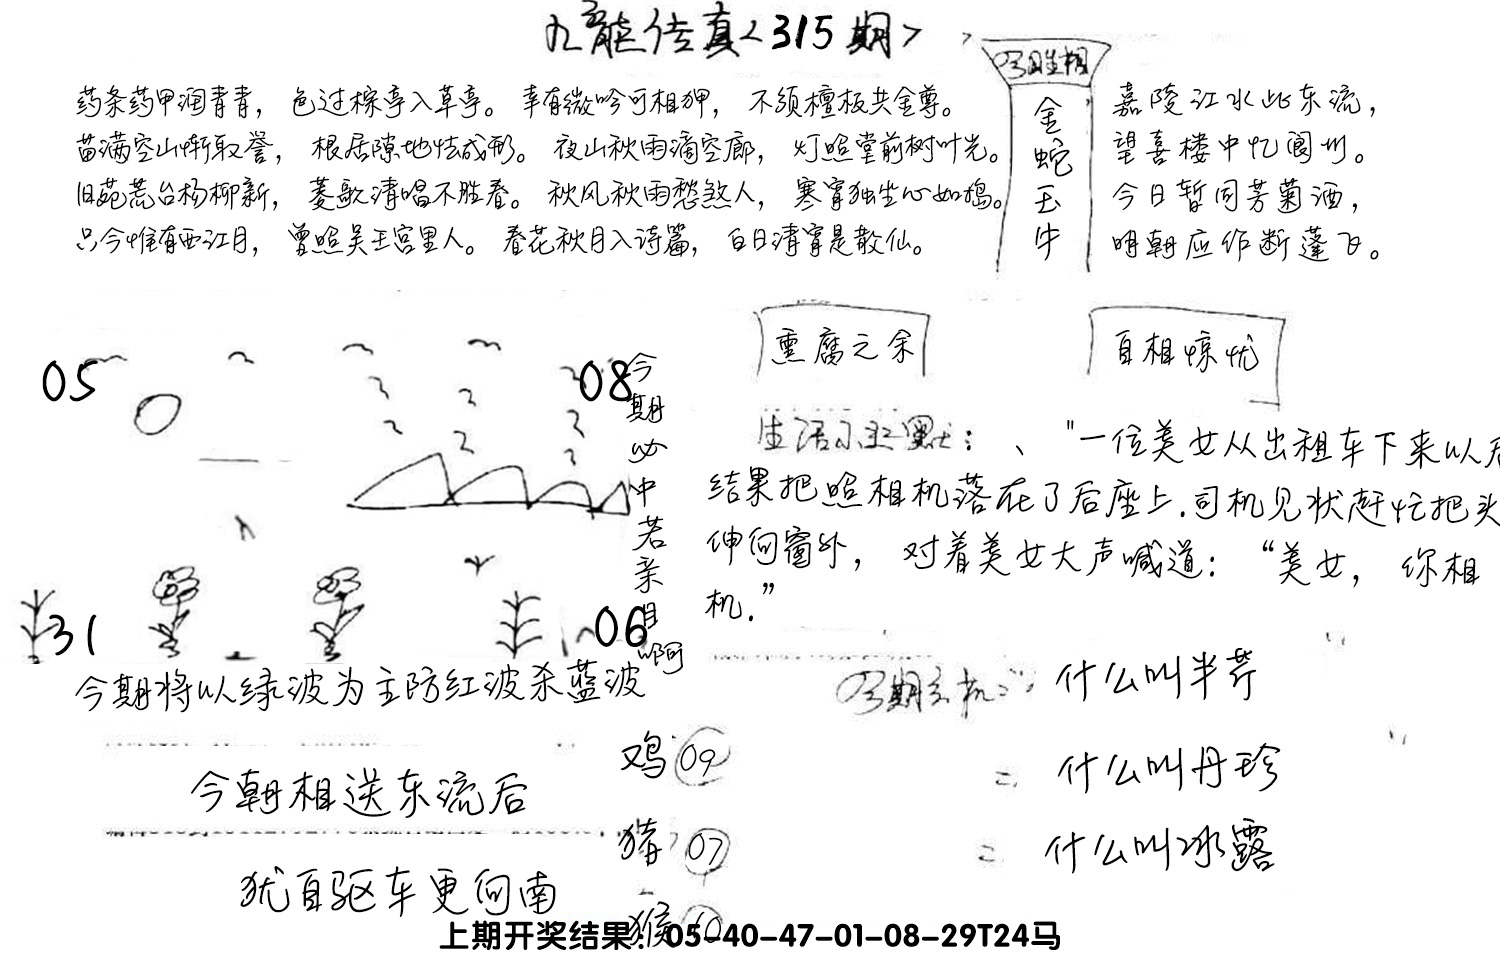 九龙传真<315期>
药条药甲润青青，色过棕亭入草亭。幸有微吟可相狎，不须檀板共金尊。
苗满空山惭取誉，根居隙地怯成形。夜山秋雨滴空廊，灯照堂前树叶光。
旧苑荒台杨柳新，菱歌清唱不胜春。秋风秋雨愁煞人，寒宵独坐心如捣。
只今惟有西江月，曾照吴王宫里人。春花秋月入诗篇，白日清宵是散仙。
金蛇玉牛
嘉陵江水此东流，
望喜楼中忆阆州。
今日暂同芳菊酒，
明朝应作断蓬飞。
熏腐之余
自相惊忧
05
08
31
06
今期必中若亲自啊
："一位美女从出租车下来以后
结果把照相机落在了后座上.司机见状赶忙把头
伸向窗外，对着美女大声喊道：“美女，你相
机.”
今期将以绿波为主防红波杀蓝波
什么叫半芹
什么叫丹珍
什么叫冰露
今朝相送东流后
犹自驱车更向南
鸡 09
猪 07
猴 10
上期开奖结果：05-40-47-01-08-29T24马